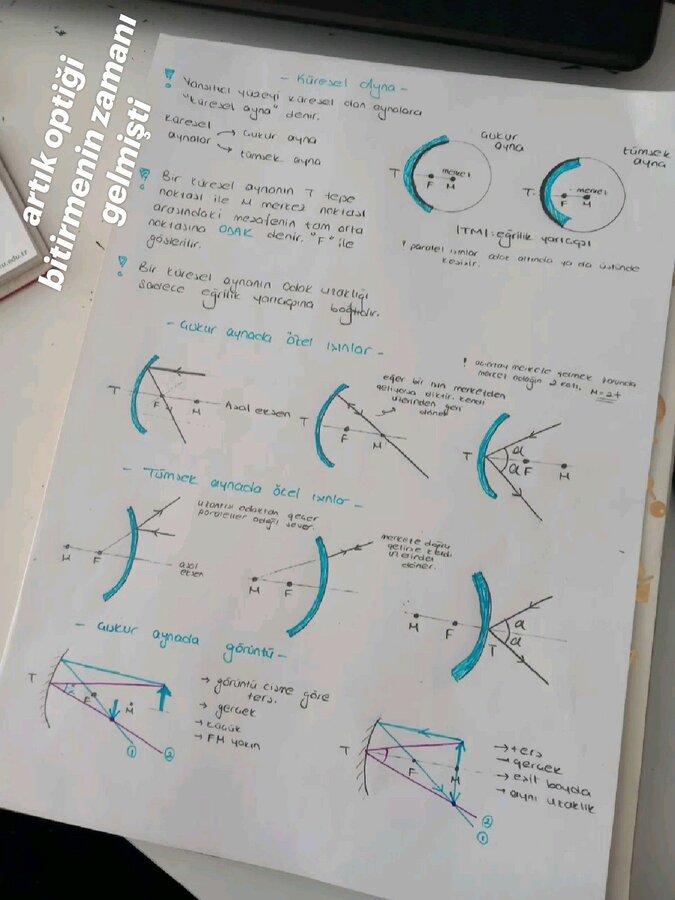 artık optiği
bitirmenin zamanı
gelmişti
- Küresel Ayna -
! Yansıtıcı yüzeyi küresel olan aynalara
"küresel ayna" denir.
Küresel → Çukur ayna
aynalar → tümsek ayna
çukur
ayna
tümsek
ayna
T
merkez
F
M
T
merkez
F
M
! Bir küresel aynanın T tepe
noktası ile M merkez noktası
arasındaki mesafenin tam orta
noktasına ODAK denir. "F" ile
gösterilir.
|TM|: eğrilik yarıçapı
! paralel ışınlar odak altında ya da üstünde
kesişir.
! Bir küresel aynanın odak uzaklığı
sadece eğrilik yarıçapına bağlıdır.
- Çukur aynada özel ışınlar -
merkez odağın 2 katı. M=2f
T
F
M
Asal eksen
eğer bir ışın merkezden
geliyorsa diktir. kendi
üzerinden geri
döner
T
F
M
T
α
α
F
M
- Tümsek aynada özel ışınlar -
uzantısı odaktan geçer
paraleller odağı sever.
M
F
T
asal
eksen
merkeze doğru
gelirse kendi
üzerinden
döner.
M
F
T
M
F
T
α
α
- Çukur aynada görüntü -
T
F
M
①
②
→ görüntü cisme göre
ters.
→ gerçek
→ küçük
→ FM yakın
T
F
M
②
①
→ ters
→ gerçek
→ eşit boyda
→ aynı uzaklık